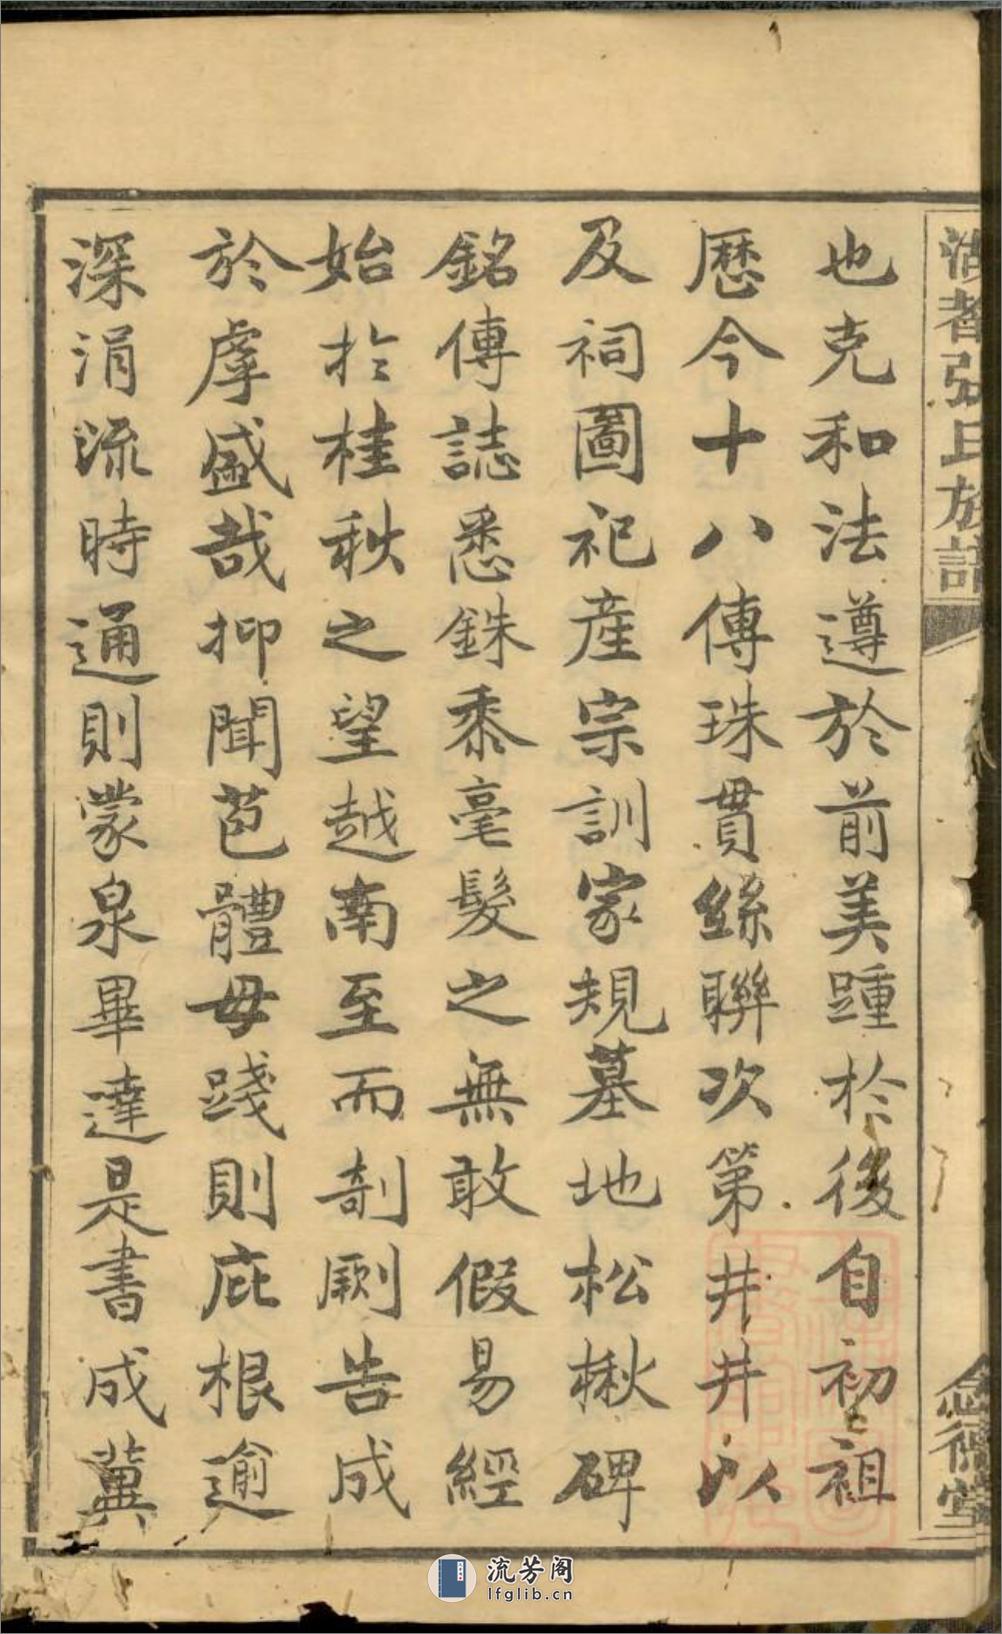 張氏族譜
念德堂
也克和法遵於前美踵於後自初祖
歷今十八傳珠貫絲聯次第井井以
及祠圖祀產宗訓家規墓地松楸碑
銘傳誌悉銖黍毫髮之無敢假易經
始於桂秋之望越南至而剞劂告成
於虖盛哉抑聞苞體毋踐則庇根逾
深涓流時通則蒙泉畢達是書成冀
流芳阁
lfglib.cn